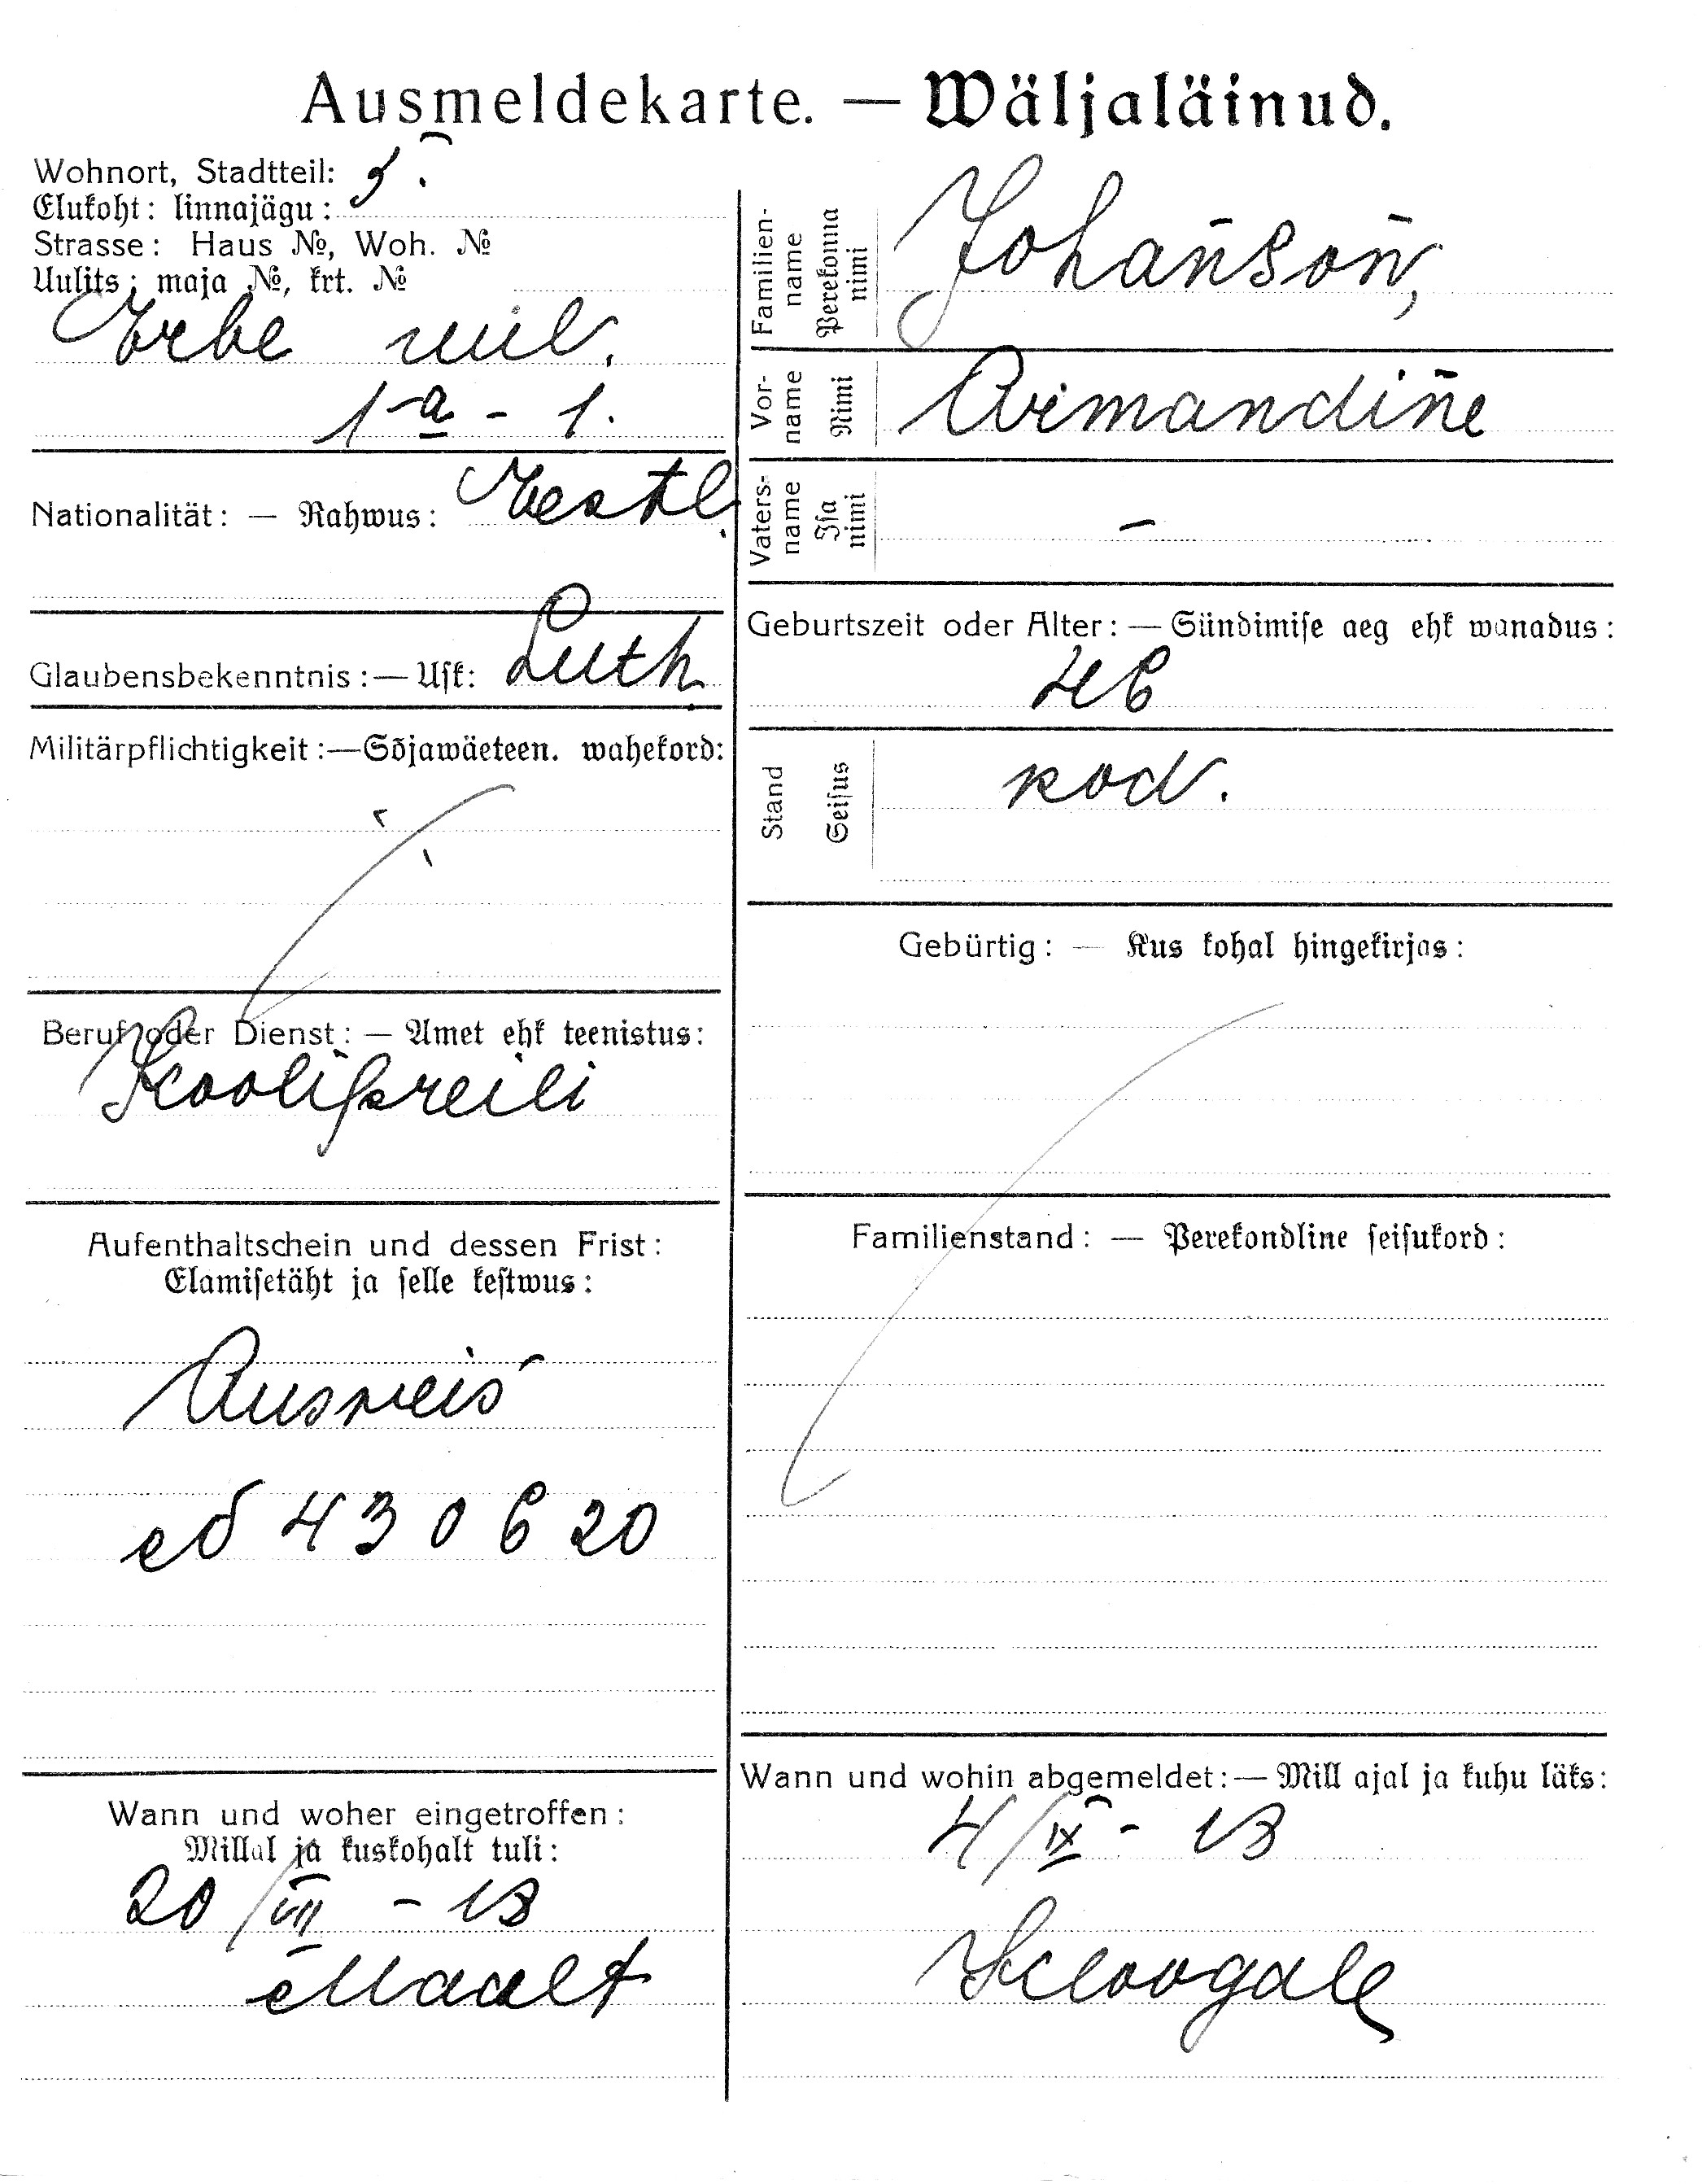 Ausmeldekarte. — Wäljaläinud.
Wohnort, Stadtteil: 5.
Elukoht: linnajägu:
Strasse: Haus №, Woh. №
Uulits: maja №, krt. №
Erbe uul.
1 a - 1.
Nationalität: — Rahwus: Eestl.
Glaubensbekenntnis:— Usk: Luth.
Militärpflichtigkeit:—Sõjawäeteen. wahekord:
Beruf oder Dienst: — Amet ehk teenistus:
Koolipreili
Aufenthaltschein und dessen Frist:
Elamisetäht ja selle kestwus:
Ausweis
43 0 6 20
Wann und woher eingetroffen:
Millal ja kuskohalt tuli:
20/VII - 18
Maalt
Familien-name Perekonna nimi Johanson,
Vor-name Nimi Armandine
Vaters-name Isa nimi –
Geburtszeit oder Alter: — Sündimise aeg ehk wanadus:
46
Stand Seisus kod.
Gebürtig: — Kus kohal hingekirjas:
Familienstand: — Perekondline seisukord:
Wann und wohin abgemeldet:— Mill ajal ja kuhu läks:
4/IX - 18
Kloogale